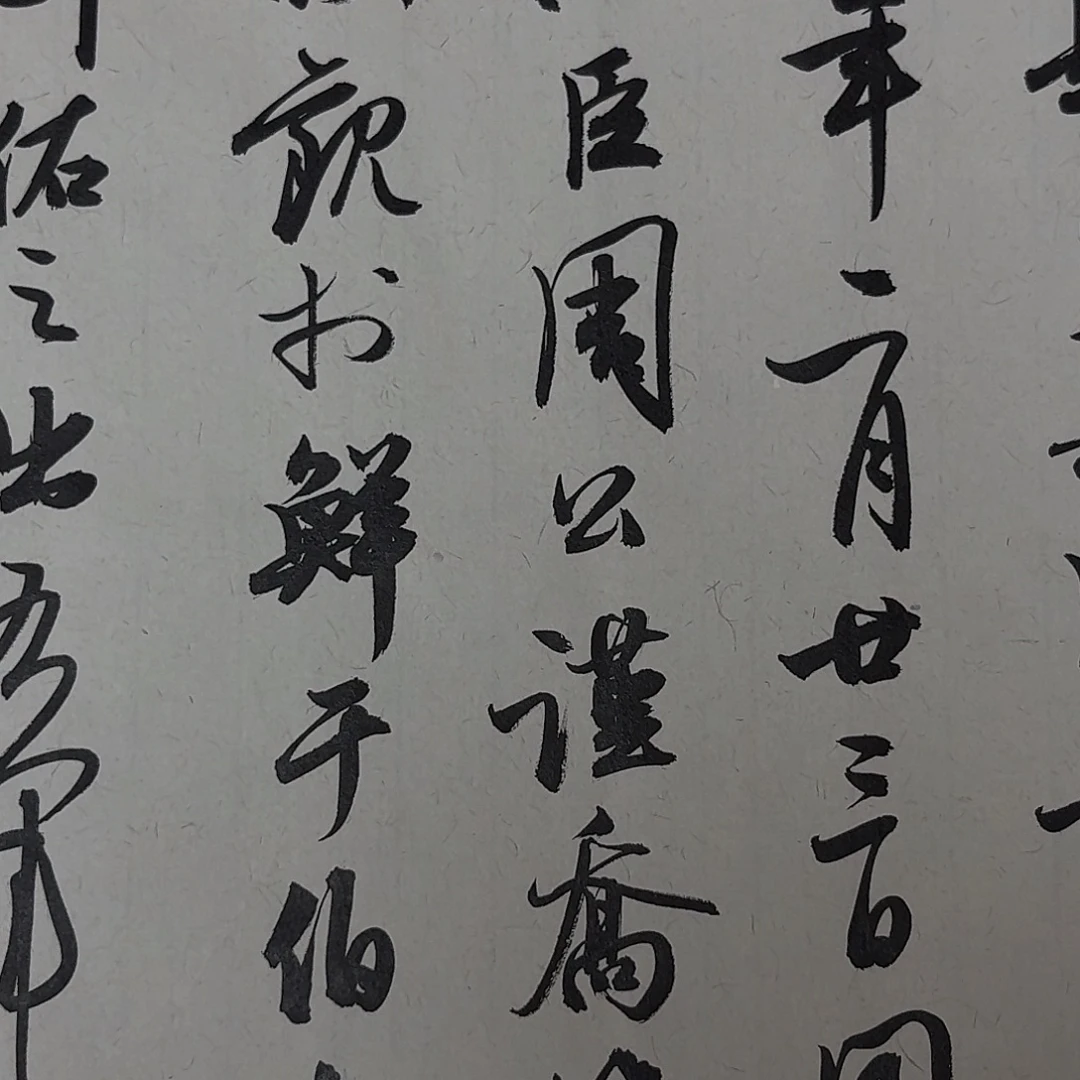 年二月廿三日同
臣周公謹喬
觀於鮮于伯
佑之出右軍